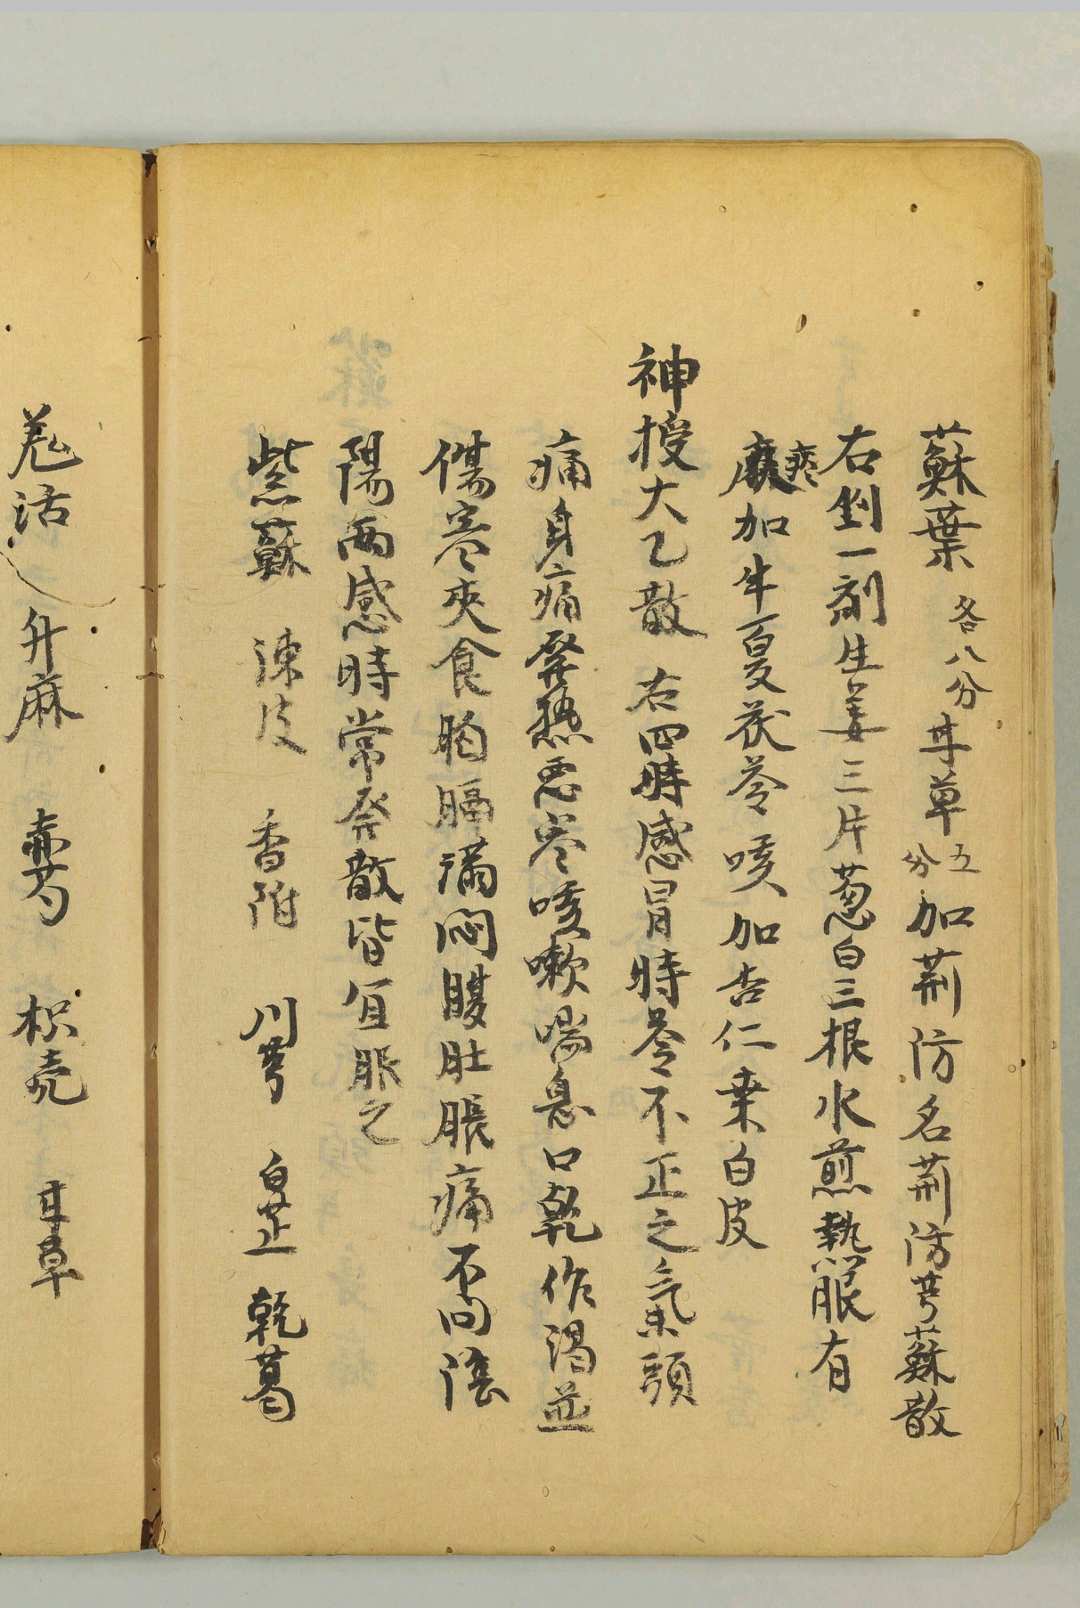 蘇葉 各八分 甘草 五分 加荊防名荊防芎蘇散
右剉一劑生姜三片葱白三根水煎熱服有
痰加半夏茯苓咳加杏仁桑白皮
神授大乙散 右四時感冒時苓不正之氣頭
痛身痛發熱惡寒咳嗽喘息口乾作渴並
傷寒夾食胸膈滿悶腹肚脹痛不问陰
陽两感時常發散皆宜服之
紫蘇 陳皮 香附 川芎 白芷 乾葛
羗活 升麻 赤芍 枳壳 甘草